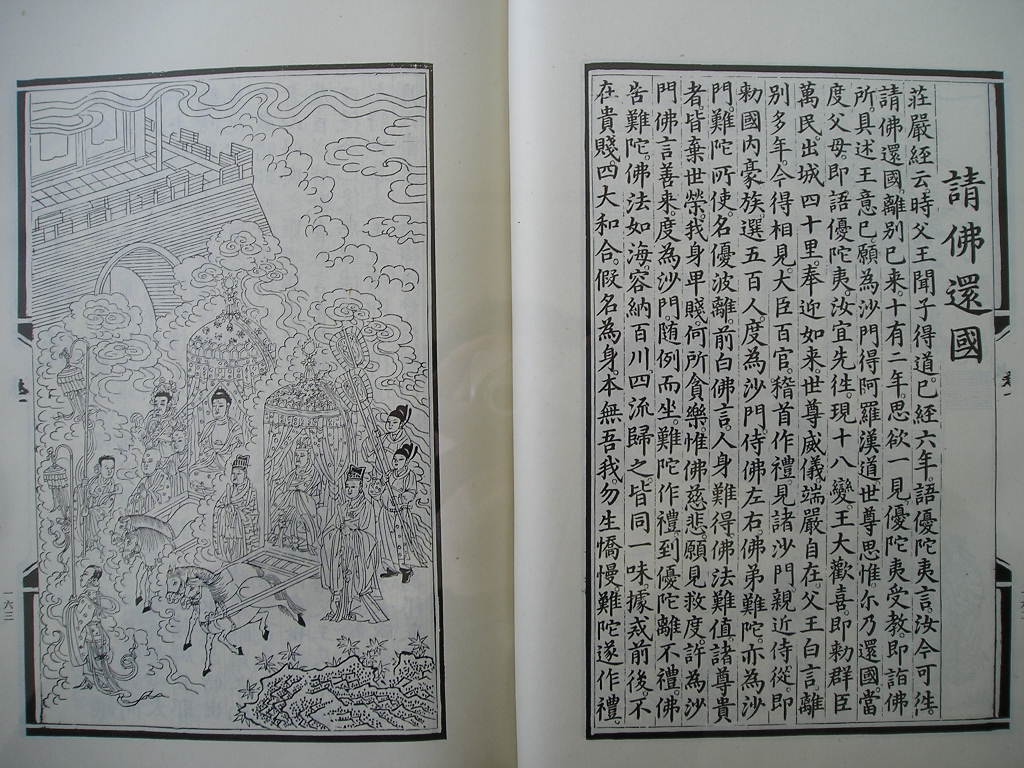 請佛還國
莊嚴經云時父王聞子得道。已經六年。語優陀夷言。汝今可徃。
請佛還國。離別已来。十有二年。思欲一見。優陀夷受教。即詣佛
所。具述王意已。願為沙門得阿羅漢道世尊思惟尒乃還國。當
度父母。即語優陀夷。汝宜先徃。現十八變。王大歡喜。即勑群臣
萬民。出城四十里。奉迎如来。世尊威儀端嚴自在。父王白言。離
別多年。今得相見。大臣百官。稽首作禮。見諸沙門親近侍從。即
勑國内豪族選五百人。度為沙門。侍佛左右。佛弟難陀。亦為沙
門。難陀所使。名優波離。前白佛言。人身難得。佛法難值。諸尊貴
者。皆棄世榮。我身卑賤。何所貪樂。惟佛慈悲。願見救度。許為沙
門。佛言善来。度為沙門。随例而坐。難陀作禮。到優陀離不禮。佛
告難陀。佛法如海。容納百川。四流歸之。皆同一味。據戒前後。不
在貴賤。四大和合。假名為身。本無吾我。勿生憍慢。難陀遂作禮。
一六三